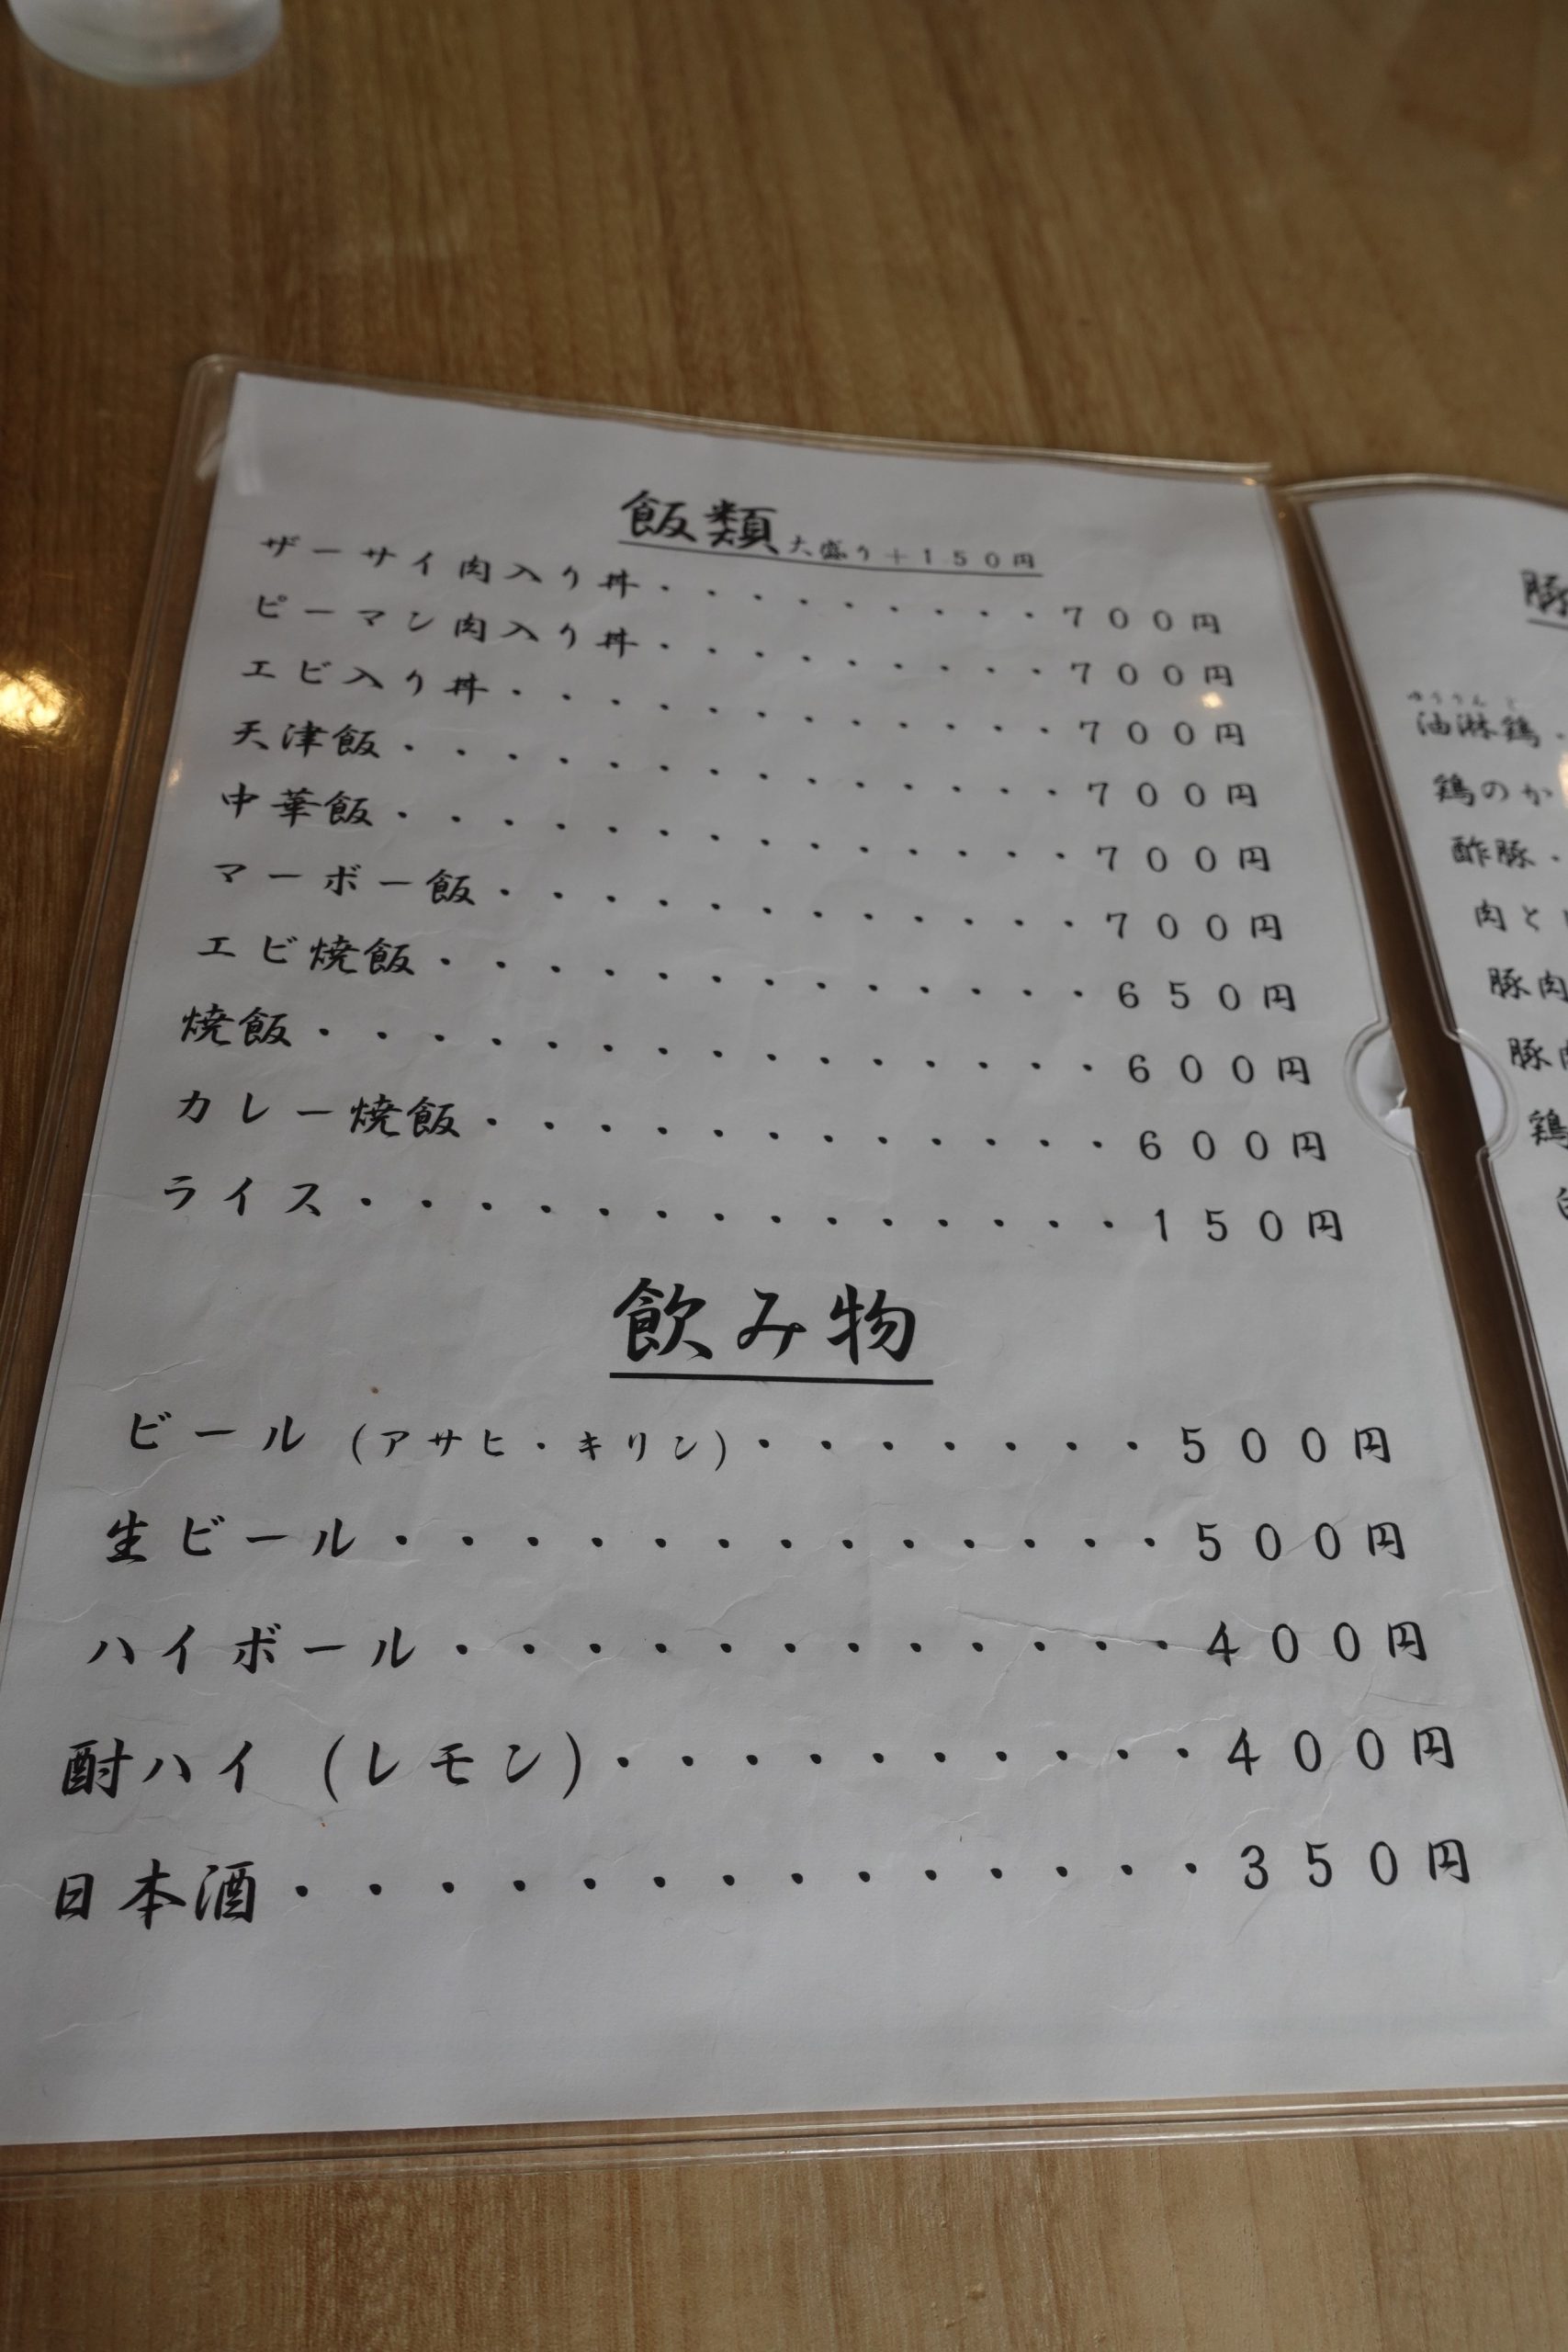 飯類 大盛り+150円
ザーサイ肉入り丼・・・・・・・・・700円
ピーマン肉入り丼・・・・・・・・・700円
エビ入り丼・・・・・・・・・・・・700円
天津飯・・・・・・・・・・・・・・700円
中華飯・・・・・・・・・・・・・・700円
マーボー飯・・・・・・・・・・・・700円
エビ焼飯・・・・・・・・・・・・・650円
焼飯・・・・・・・・・・・・・・・600円
カレー焼飯・・・・・・・・・・・・600円
ライス・・・・・・・・・・・・・・150円
飲み物
ビール (アサヒ・キリン)・・・・・・・・500円
生ビール・・・・・・・・・・・・500円
ハイボール・・・・・・・・・・・400円
酎ハイ (レモン)・・・・・・・・・・400円
日本酒・・・・・・・・・・・・・・350円
豚
油淋鶏・
鶏のか
酢豚・
肉と
豚肉
豚肉
鶏